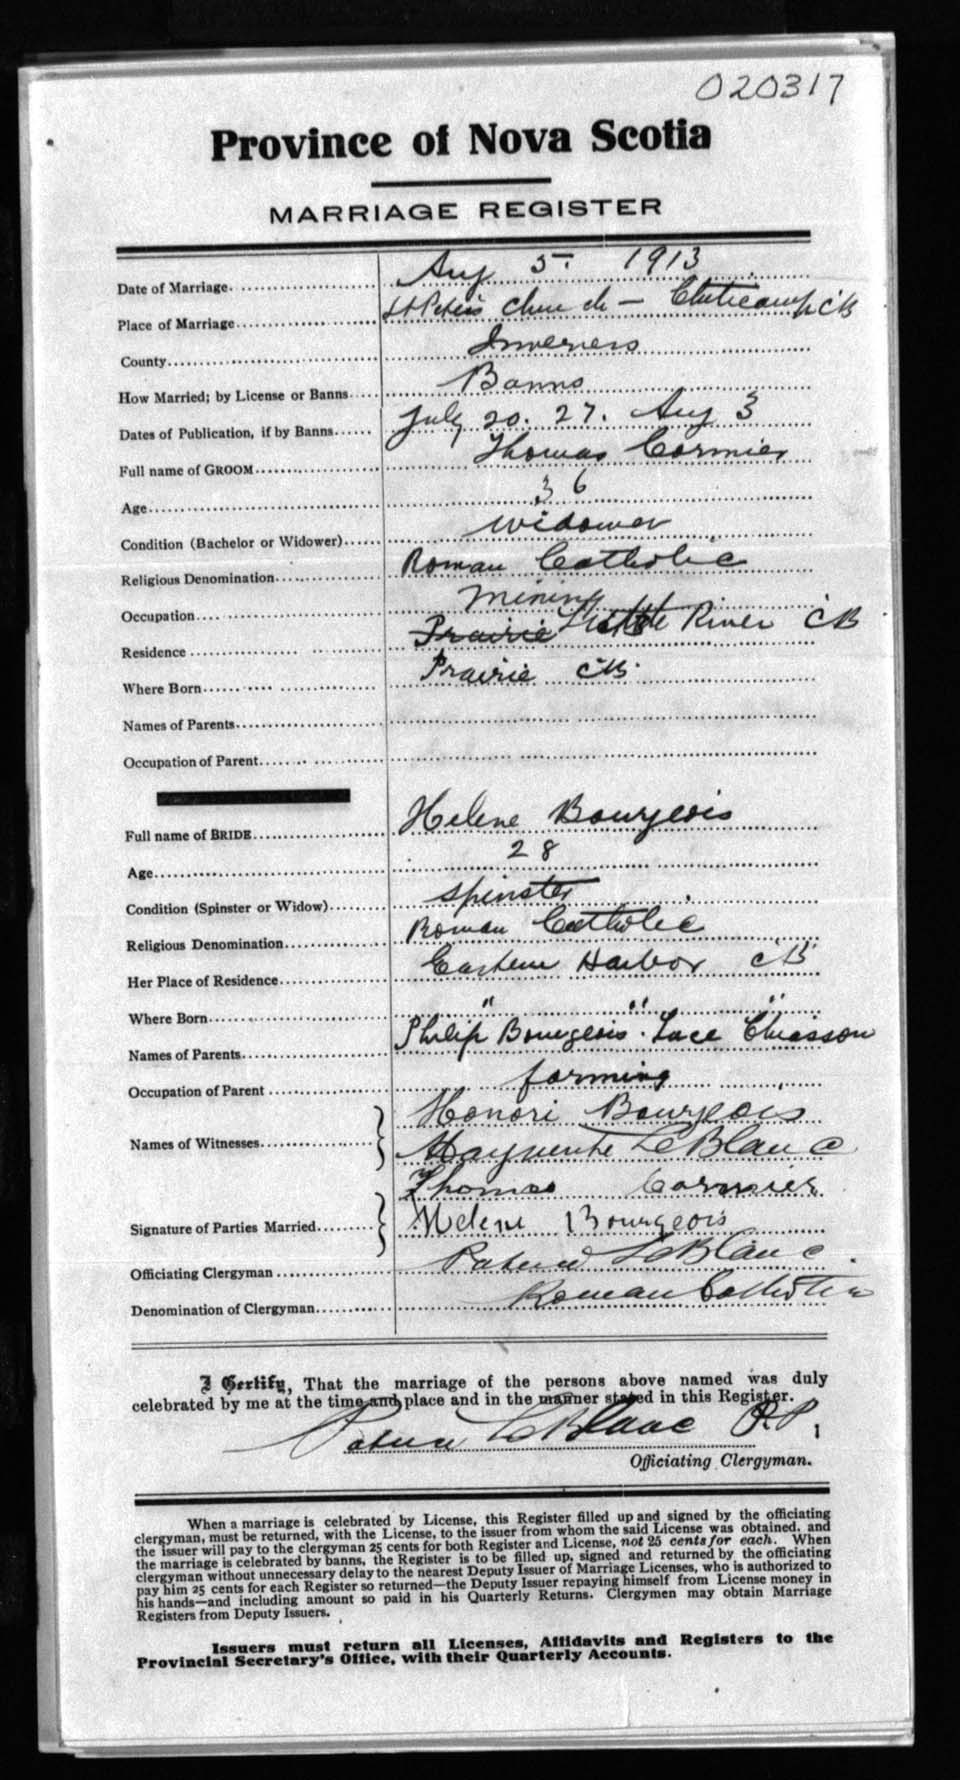 020317
Province of Nova Scotia
MARRIAGE REGISTER
Date of Marriage Aug 5 1913
Place of Marriage St Peters Church — Cheticamp CB
County Inverness
How Married; by License or Banns Banns
Dates of Publication, if by Banns July 20. 27. Aug 3
Full name of GROOM Thomas Cormier
Age 36
Condition (Bachelor or Widower) widower
Religious Denomination Roman Catholic
Occupation mining
Residence Prairie Little River CB
Where Born Prairie CB
Names of Parents
Occupation of Parent
Full name of BRIDE Helene Bourgeois
Age 28
Condition (Spinster or Widow) spinster
Religious Denomination Roman Catholic
Her Place of Residence Eastern Harbor CB
Where Born " " "
Names of Parents Philip Bourgeois Luce Chiasson
Occupation of Parent farming
Names of Witnesses Honori Bourgeois
Marguerite LeBlanc
Signature of Parties Married Thomas Cormier
Helene Bourgeois
Officiating Clergyman LeBlanc
Denomination of Clergyman Roman Catholic
I Certify, That the marriage of the persons above named was duly
celebrated by me at the time and place and in the manner stated in this Register.
LeBlanc P.P.
Officiating Clergyman.
When a marriage is celebrated by License, this Register filled up and signed by the officiating
clergyman, must be returned, with the License, to the issuer from whom the said License was obtained, and
the issuer will pay to the clergyman 25 cents for both Register and License, not 25 cents for each. When
the marriage is celebrated by banns, the Register is to be filled up, signed and returned by the officiating
clergyman without unnecessary delay to the nearest Deputy Issuer of Marriage Licenses, who is authorized to
pay him 25 cents for each Register so returned—the Deputy Issuer repaying himself from License money in
his hands—and including amount so paid in his Quarterly Returns. Clergymen may obtain Marriage
Registers from Deputy Issuers.
Issuers must return all Licenses, Affidavits and Registers to the
Provincial Secretary's Office, with their Quarterly Accounts.